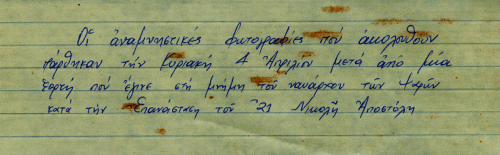 Οἱ ἀναμνηστικές φωτογραφίες πού ἀκολουθοῦν
πάρθηκαν τήν Κυριακή 4 Ἀπριλίου μετά ἀπό μία
ἑορτή πού ἔγινε στή μνήμη τοῦ ναυάρχου τῶν Ψαρῶν
κατά τήν Ἐπανάσταση τοῦ '21 Νικολῆ Ἀποστόλη